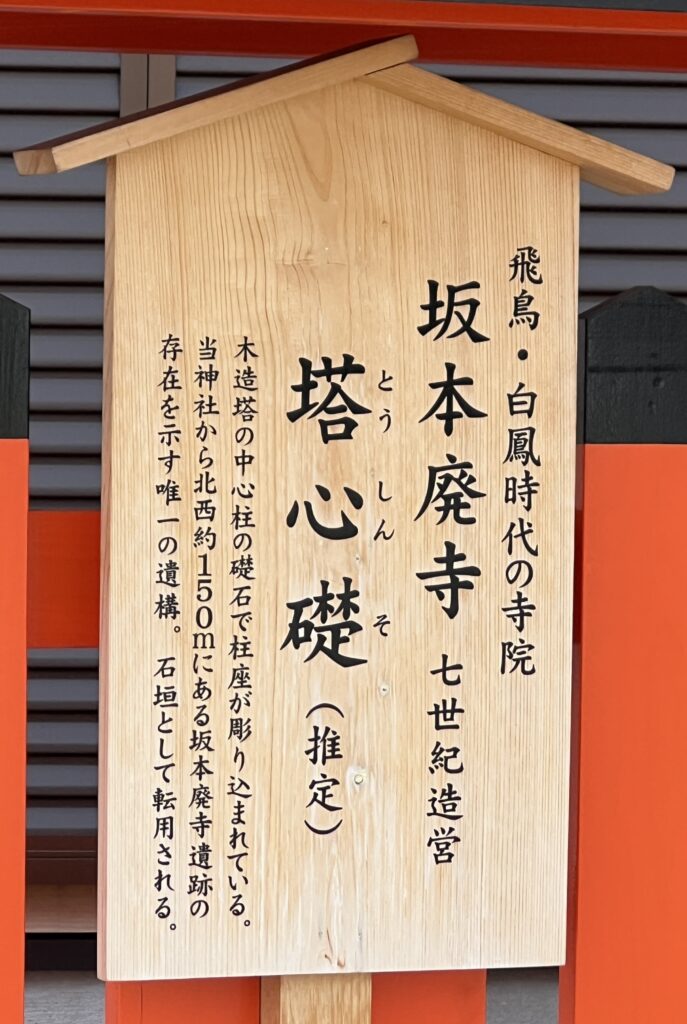 飛鳥・白鳳時代の寺院
坂本廃寺 七世紀造営
塔心礎（推定）
とうしんそ
木造塔の中心柱の礎石で柱座が彫り込まれている。
当神社から北西約150mにある坂本廃寺遺跡の
存在を示す唯一の遺構。石垣として転用される。